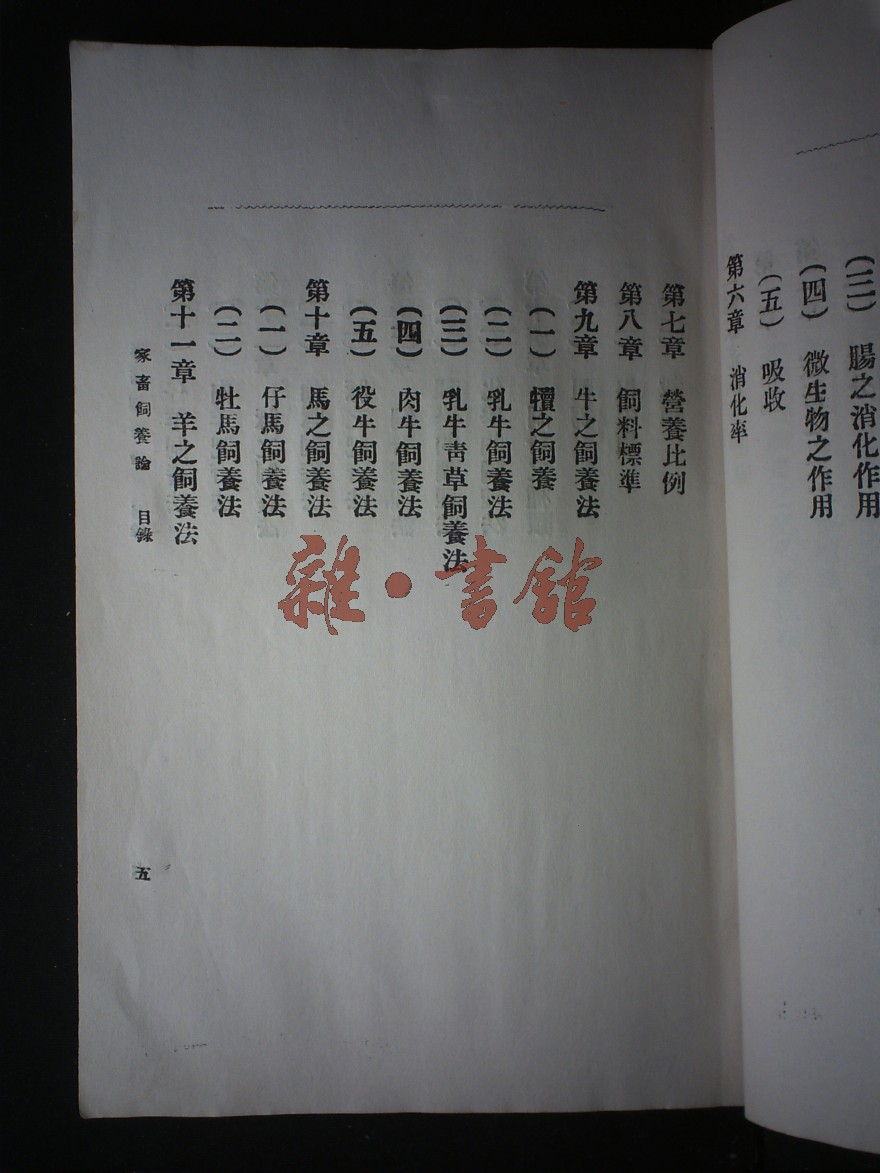 （三）　腸之消化作用
（四）　微生物之作用
（五）　吸收
第六章　消化率
第七章　營養比例
第八章　飼料標準
第九章　牛之飼養法
（一）　犢之飼養
（二）　乳牛飼養法
（三）　乳牛靑草飼養法
（四）　肉牛飼養法
（五）　役牛飼養法
第十章　馬之飼養法
（一）　仔馬飼養法
（二）　牡馬飼養法
第十一章　羊之飼養法
家畜飼養論　目錄
五
雜·書館